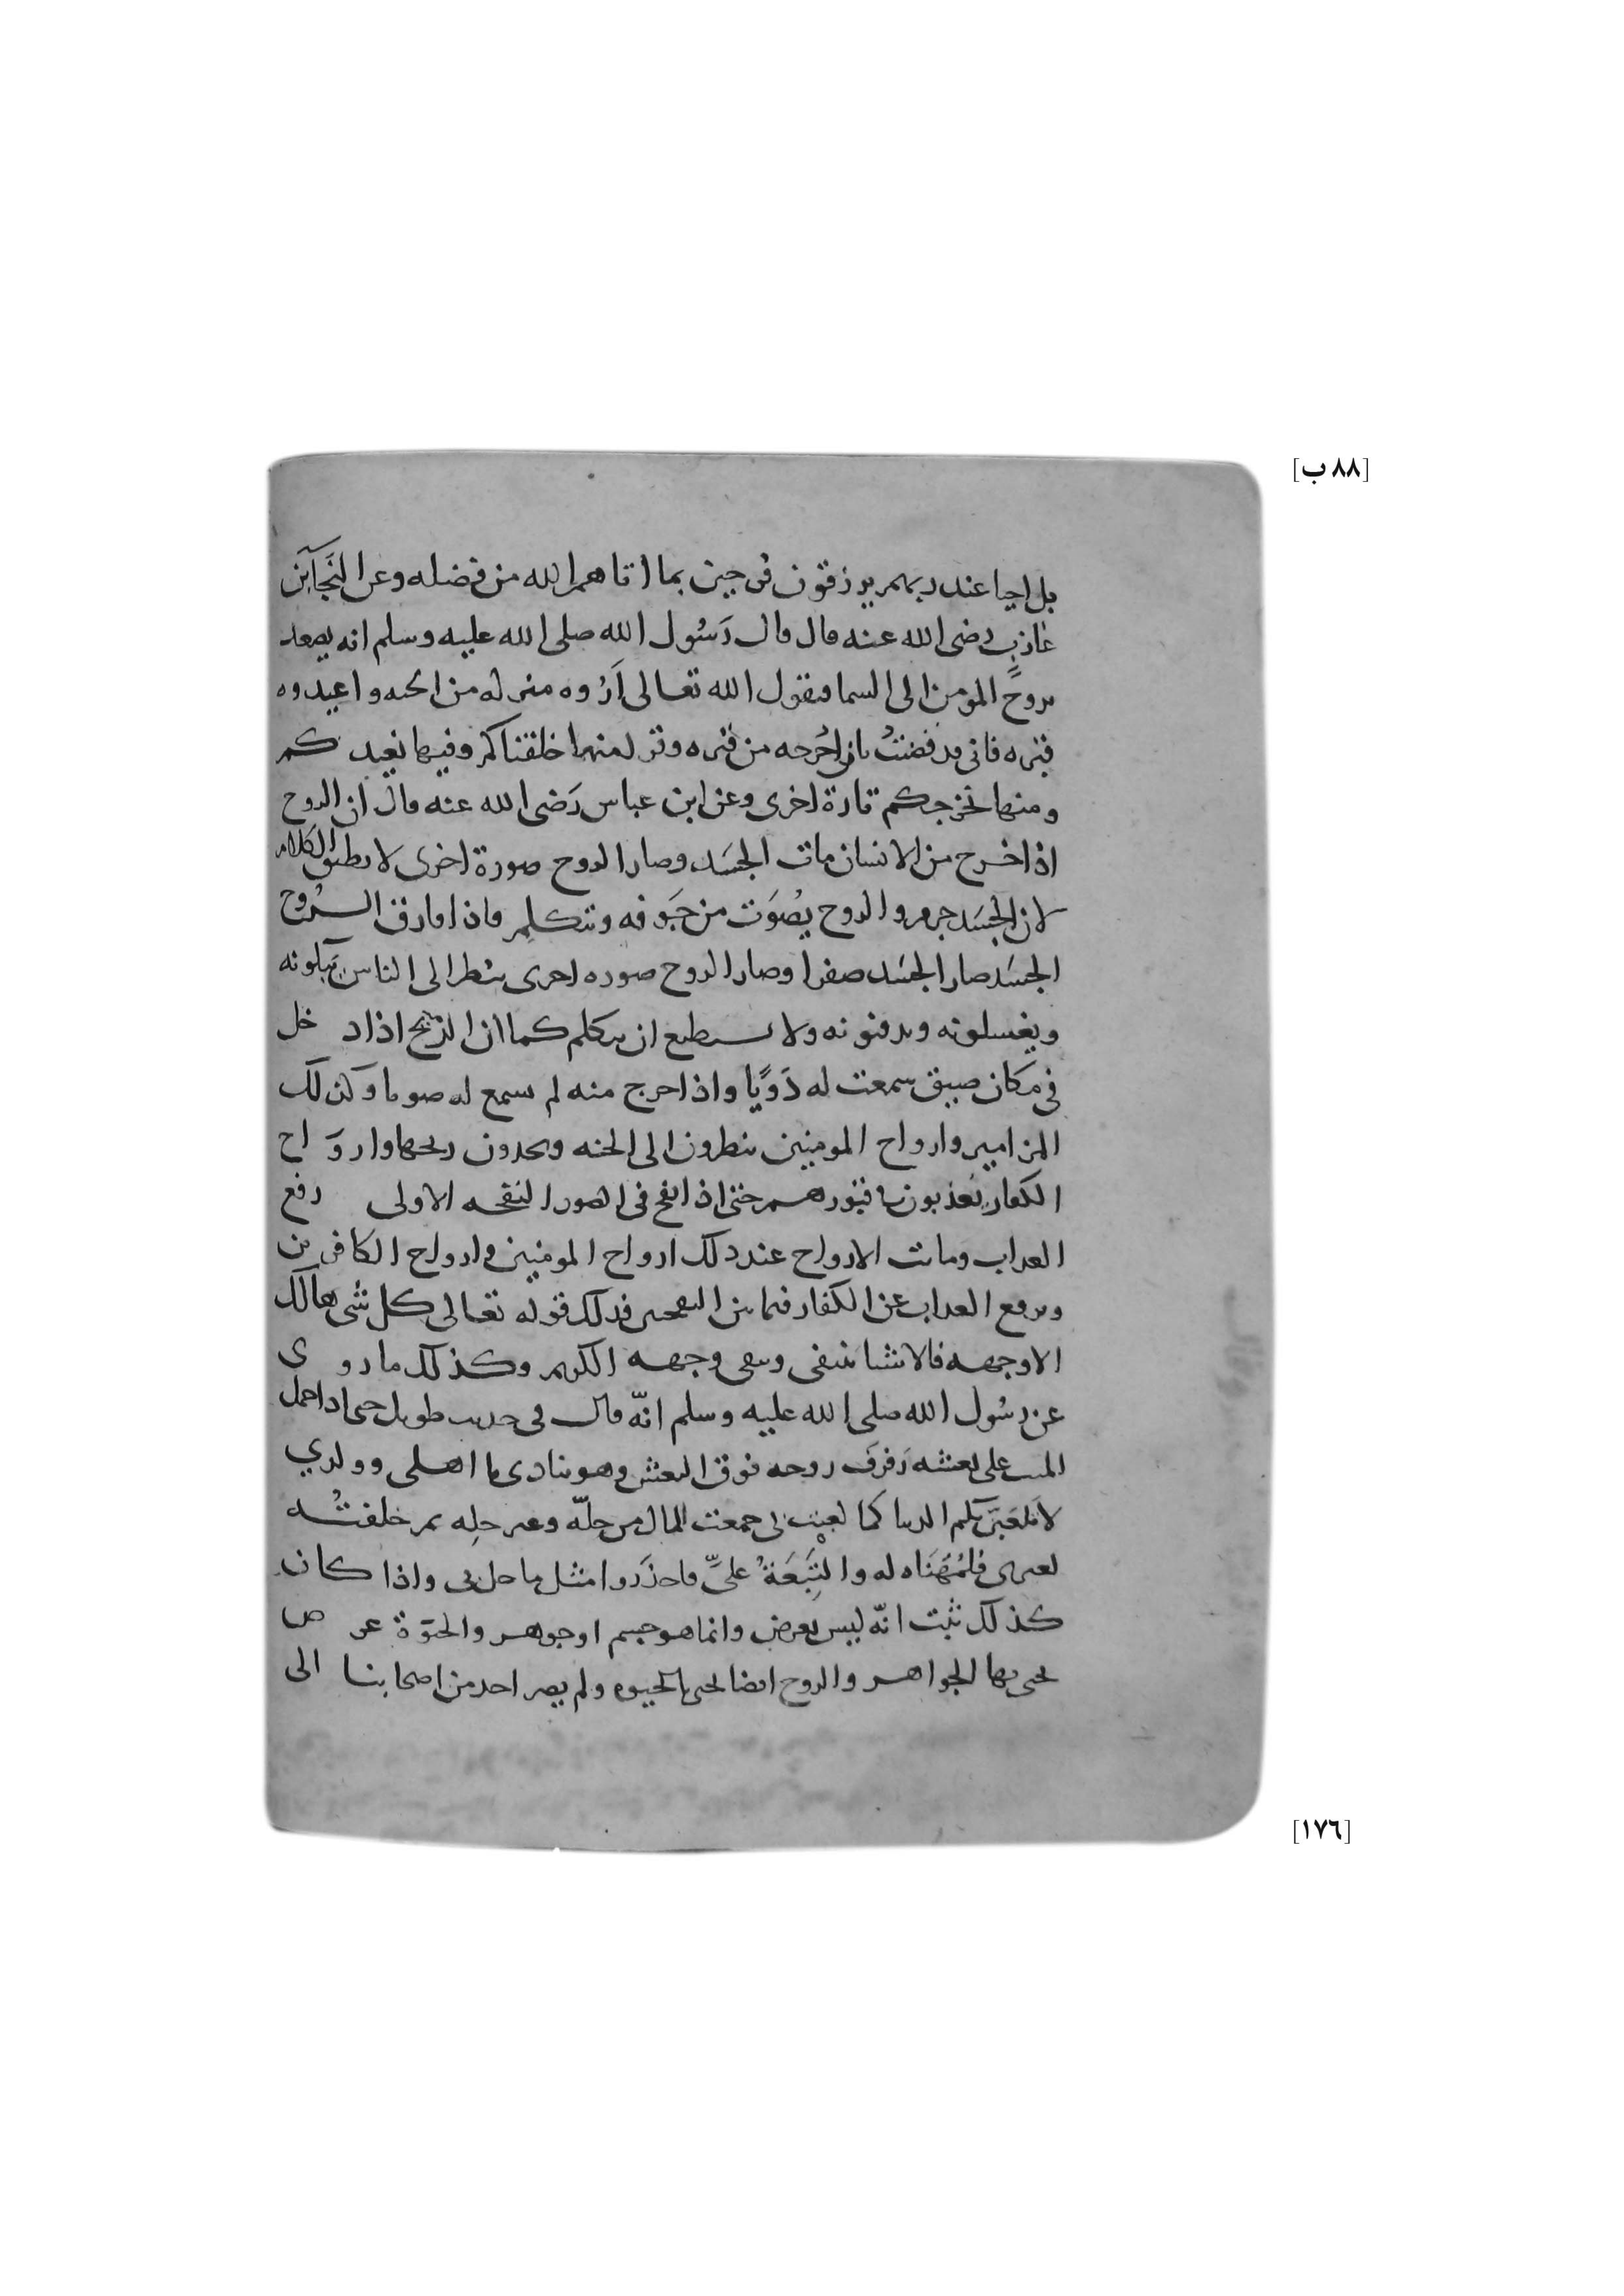 [٨٨ ب]
بل احيا عند ربهم يرزقون فرحين بما اتاهم الله من فضله وعن البَرَآ بن
عازب رضى الله عنه قال قال رَسُول الله صلى الله عليه وسلم انه يصعد
بروح المؤمن الى السما فيقول الله تعالى اَرُوه منزله من الجنه واعيدوه
قبره فانى قد قضيتُ بان اخُرجه من قبره وقر لمنها خلقناكم وفيها نعيد كم
ومنها نخرجكم تارة اخرى وعن ابن عباس رَضى الله عنه قال ان الروح
اذا خرج من الانسان مات الجسَد وصار الروح صورة اخرى لا يطيق الكلام
لان الجسَد جرم والروح يصُوَت من جَوفه ويتكلم فاذا فارق الــروح
الجسَد صار الجسَد صفرا وصار الروح صوره اخرى ينظر الى الناس يبكونه
ويغسلونه ويدفنونه ولا يستطيع ان يتكلم كما ان الريح اذا د خل
فى مكان ضيق سمعت له دَويًا واذا خرج منه لم يسمع له صوتا وكذلك
المزامير وارواح المومنين ينظرون الى الجنه ويجدون ريحها وارو اح
الكفار يُعَذبون فى قبورهم حتى اذا نفخ فى الصور النفخه الاولى رفع
العذاب وماتت الارواح عند ذلك ارواح المومنين وارواح الكافرين
ويرفع العذاب عن الكفار فيما بين النفحتين فذلك قوله تعالى كل شى هالك
الا وجهه فالاشيا تفنى ويبقى وجهه الكريم وكذلك ما رو ى
عن رسُول الله صلى الله عليه وسلم انّه قال فى حديث طويل حتى اذا حمل
الميت على نعشه رَفرفَ روحه فوق النعش وهو ينادى يا اهلى وولدي
لا تلعَبَنّ بكم الدنيا كما لعبَت بى جمعت المال من حلّه وغير حلِه ثم خلفتُـه
لغيرى فالمُهَنَاه له والتَّبِعَةُ علىَّ فاحذَروا مثل ما حل بى واذا كان
كذلك ثبت انّه ليس بعرض وانما هو جسم او جوهر والحيوٰة عر ض
يحيى بها الجواهر والروح ايضا يحيى بالحيوه ولم يصر احد من اصحابنا الى
[١٧٦]